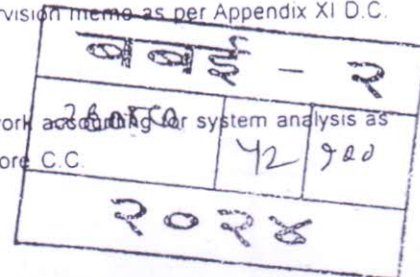 rvision memo as per Appendix XI D.C.
बबई - २
ork accounting for system analysis as
५२ १००
ore C.C.
२०२४